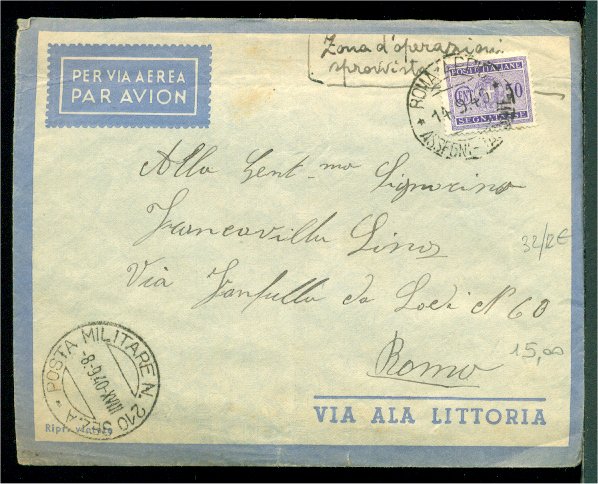 Zona d'operazioni
sprovvista
PER VIA AEREA
PAR AVION
POSTE ITALIANE
50
SEGNATASSE
ROMA
14.9.40
ASSEGNI
Alla Gent-ma Signorina
Francavilla Lina
Via Fanfulla da Lodi N° 60
Roma
32/12€
15,00
POSTA MILITARE N. 210 SEZ.A
-8-9.40-XVIII
VIA ALA LITTORIA
Ripr. vietata